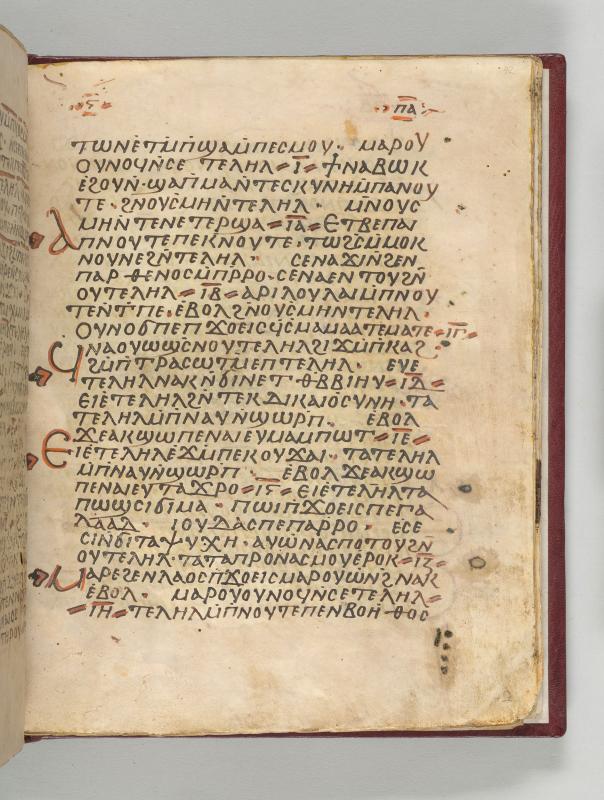 ⲋ̄ ⲡⲁ̄
ⲧⲱⲛⲉ̇ⲧⲙ̄ⲡ̇ϣⲁⲙ̇ⲡⲉⲥⲙⲟⲩ · ⲙⲁⲣⲟⲩ
ⲟⲩⲛⲟϥⲛ̇ⲥⲉ ⲧⲉⲗⲏⲗ = ⲓ̄ = ϯⲛⲁⲃⲱⲕ
ⲉ̇ϩⲟⲩⲛ · ϣⲁⲡ̇ⲙⲁⲛ̇ⲧⲉⲥⲕⲩⲛⲏⲙ̇ⲡⲁⲛⲟⲩ
ⲧⲉ · ϩⲛⲟⲩⲥⲙⲏⲛ̇ⲧⲉⲗⲏⲗ · ⲙⲛ̇ⲟⲩⲥ
ⲙⲏⲛ̇ⲧⲉⲛⲉⲧⲉⲣϣⲁ = ⲓⲁ̄ = ⲉⲧⲃⲉⲡⲁⲓ
ⲁⲡⲛⲟⲩⲧⲉⲡⲉⲕⲛⲟⲩⲧⲉ · ⲧⲱϩⲥⲙ̇ⲙⲟⲕ
ⲛⲟⲩⲛⲉϩⲛ̇ⲧⲉⲗⲏⲗ · ⲥⲉⲛⲁϫⲓⲛ̇ϩⲉⲛ
ⲡⲁⲣⲑⲉⲛⲟⲥⲙ̇ⲡⲣ̄ⲣⲟ · ⲥⲉⲛⲁⲉⲛⲧⲟⲩϩⲛ̇
ⲟⲩⲧⲉⲗⲏⲗ = ⲓⲃ̄ = ⲁⲣⲓⲗⲟⲩⲗⲁⲓⲙ̇ⲡⲛⲟⲩ
ⲧⲉⲛ̇ⲧⲡⲉ · ⲉ̇ⲃⲟⲗϩⲛ̇ⲟⲩⲥⲙⲏⲛⲧⲉⲗⲏⲗ ·
ⲟⲩⲛⲟϭⲡⲉⲡϫⲟⲉⲓⲥϥⲥⲙⲁⲙⲁⲁⲧⲉⲙⲁⲧⲉ = ⲓⲅ̄ =
ϥⲛⲁⲟⲩⲱϣⲥⲛⲟⲩⲧⲉⲗⲏⲗϩⲓϫⲙ̇ⲡ̇ⲕⲁϩ ·
ϩⲙ̇ⲡⲧⲣⲁⲥⲱⲧⲙ̇ⲉⲡⲧⲉⲗⲏⲗ · ⲉⲩⲉ
ⲧⲉⲗⲏⲗⲛⲁⲕⲛ̇ϭⲓⲛⲉⲧⲑⲃⲃⲓⲏⲩ = ⲓⲇ̄ =
ⲉⲓⲉ̇ⲧⲉⲗⲏⲗϩⲛ̇ⲧⲉⲕⲇⲓⲕⲁⲓⲟⲥⲩⲛⲏ · ⲧⲁ
ⲧⲉⲗⲏⲗⲙ̇ⲡⲛⲁⲩⲛ̇ϣⲱⲣⲡ̄ · ⲉ̇ⲃⲟⲗ
ϫⲉⲁⲕϣⲱⲡⲉⲛⲁⲓⲉⲩⲙⲁⲙ̇ⲡⲱⲧ = ⲓⲉ̄ =
ⲉⲓⲉ̇ⲧⲉⲗⲏⲗⲉ̇ϫⲙ̇ⲡⲉⲕⲟⲩϫⲁⲓ · ⲧⲁⲧⲉⲗⲏⲗ
ⲙ̇ⲡⲛⲁⲩⲛ̇ϣⲱⲣⲡ̄ · ⲉ̇ⲃⲟⲗϫⲉⲁⲕϣⲱ
ⲡⲉⲛⲁⲓⲉⲩⲧⲁϫⲣⲟ = ⲓⲋ̄ = ⲉⲓⲉ̇ⲧⲉⲗⲏⲗⲧⲁ
ⲡⲱϣⲥⲓⲕⲓⲙⲁ · ⲡⲱⲓⲡ̇ϫⲟⲉⲓⲥⲡⲉⲅⲁ
ⲗⲁⲁⲇ · ⲓⲟⲩⲇⲁⲥⲡⲉⲡⲁⲣ̄ⲣⲟ · ⲉⲥⲉ
ⲥⲓⲛ̇ϭⲓⲧⲁⲯⲩⲭⲏ · ⲁⲩⲱⲛⲁⲥⲡⲟⲧⲟⲩϩⲛ̇
ⲟⲩⲧⲉⲗⲏⲗ · ⲧⲁⲧⲁⲡⲣⲟⲛⲁⲥⲙⲟⲩⲉⲣⲟⲕ = ⲓⲍ̄ =
ⲙⲁⲣⲉϩⲉⲛⲗⲁⲟⲥⲡ̇ϫⲟⲉⲓⲥⲙⲁⲣⲟⲩⲱⲛ̇ϩⲛⲁⲕ
ⲉ̇ⲃⲟⲗ · ⲙⲁⲣⲟⲩⲟⲩⲛⲟϥⲛ̇ⲥⲉⲧⲉⲗⲏⲗ =
= ⲓⲏ̄ = ⲧⲉⲗⲏⲗⲙ̇ⲡⲛⲟⲩⲧⲉⲡⲉⲛⲃⲟⲏⲑⲟⲥ